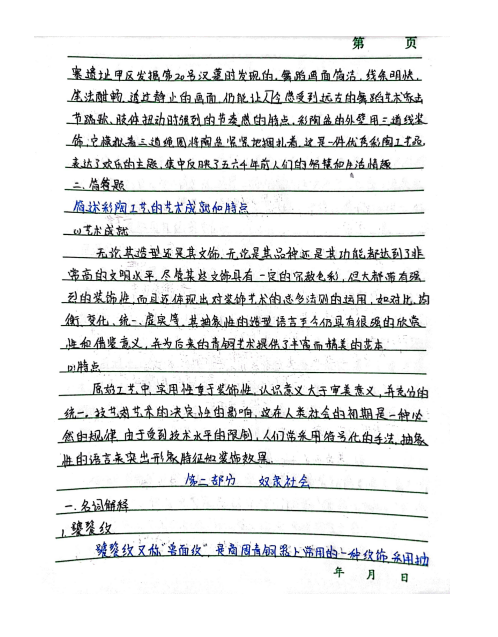 第 页
寨遗址甲区发掘第20号汉墓时发现的，舞蹈画面简洁，线条明快，
笔法酣畅，透过静止的画面，仍能让人们感受到远古的舞蹈艺术家击
节踏歌、肢体扭动时强烈的节奏感的特点，彩陶盆的外壁用三道线装
饰，它模拟着三道绳图将陶盆紧紧把捆扎着，这是一件优秀彩陶工艺品，
表达了欢乐的主题，集中反映了五六千年前人们的智慧和生活情趣
二.简答题
简述彩陶工艺的艺术成就和特点
(1)艺术成就
无论其造型还是其文饰，无论是其品种还是其功能都达到了非
常高的文明水平，尽管某些文饰具有一定的宗教色彩，但大都带有强
烈的装饰性，而且还体现出对装饰艺术的总多法则的运用，如对比、均
衡、变化、统一、虚实等，其抽象性的造型语言至今仍具有很强的欣赏
性和借鉴意义，并为后来的青铜艺术提供了丰富而精美的范本
(2)特点
原始工艺中，实用性重于装饰性，认识意义大于审美意义，并充分的
统一。技艺对艺术的决定性的影响，这在人类社会的初期是一种必
然的规律，由于受到技术水平的限制，人们常采用符号化的手法，抽象
性的语言来突出形象特征和装饰效果
第二部分 奴隶社会
一.名词解释
1.饕餮纹
饕餮纹又称“兽面纹”，是商周青铜器上常用的一种纹饰，采用抽
年 月 日